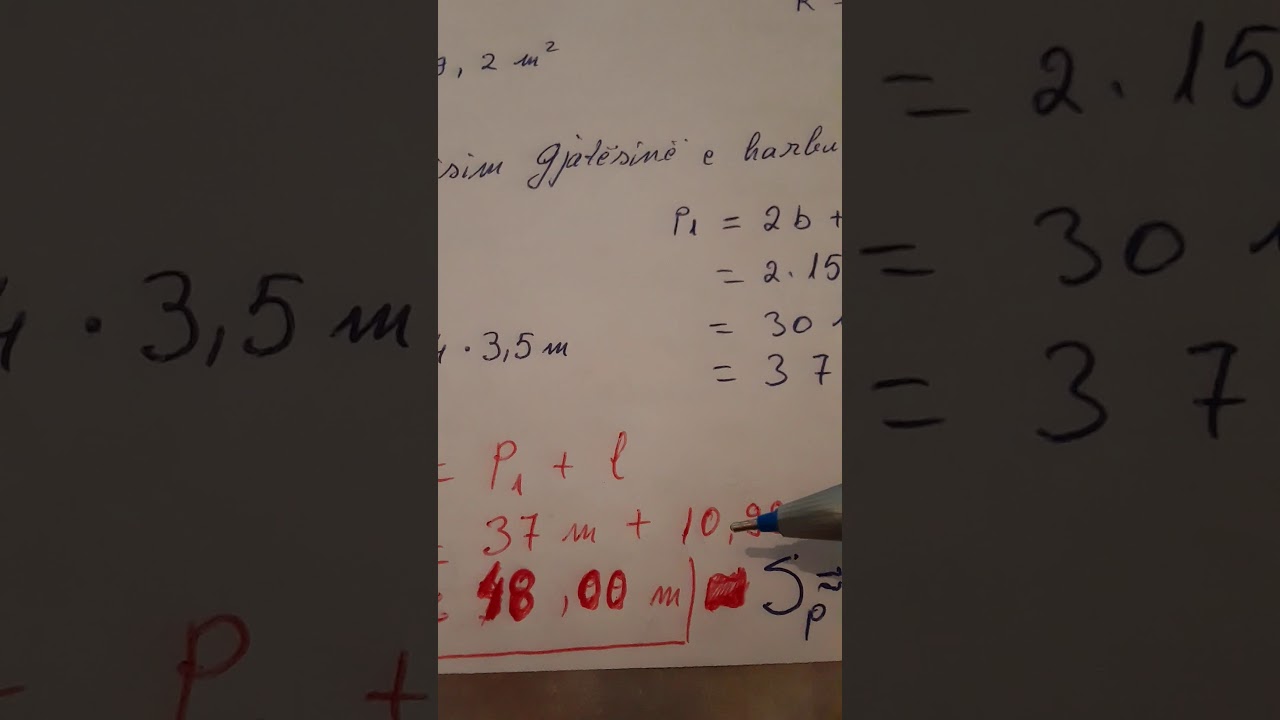 , 2 m²
sim gjatësinë e harku
P₁ = 2b +
= 2.15
· 3,5 m
= 30
= 37
= P₁ + l
= 37 m + 10,
48,00 m
Sₚ